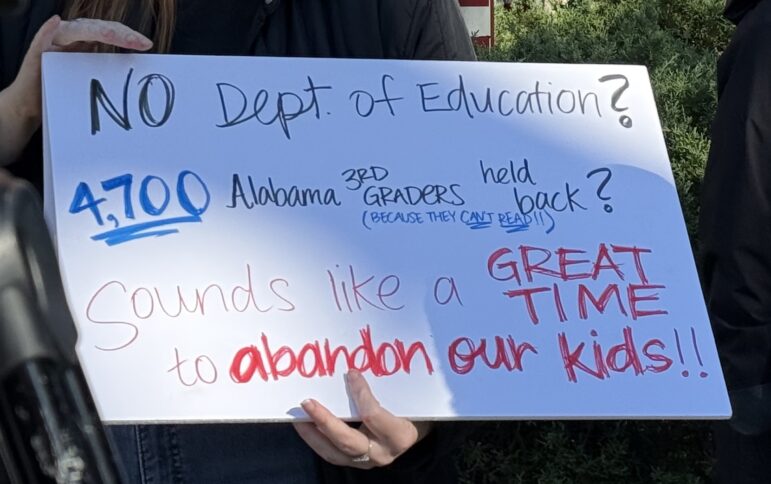 NO Dept. of Education?
4,700 Alabama 3RD GRADERS held back?
(BECAUSE THEY CAN'T READ!!)
Sounds like a GREAT TIME
to abandon our kids!!